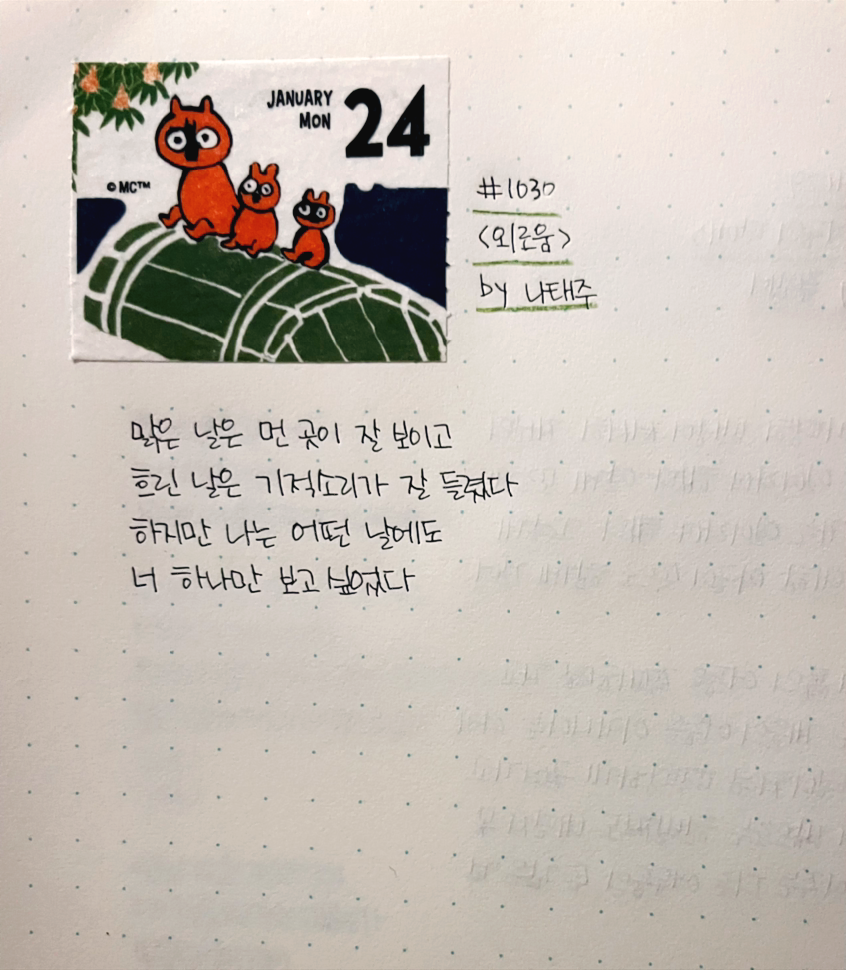 JANUARY
MON
24
© MC™
#1030
<외로움>
by 나태주
맑은 날은 먼 곳이 잘 보이고
흐린 날은 기적소리가 잘 들렸다
하지만 나는 어떤 날에도
너 하나만 보고 싶었다